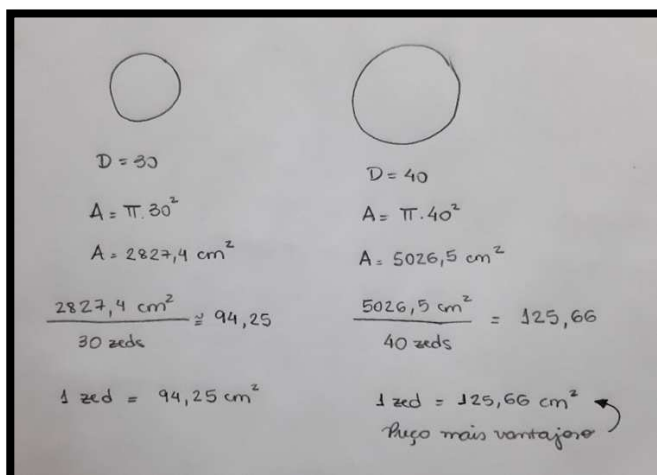 D = 30
A = π.30²
A = 2827,4 cm²
2827,4 cm²
30 zeds
≅ 94,25
1 zed = 94,25 cm²
D = 40
A = π.40²
A = 5026,5 cm²
5026,5 cm²
40 zeds
= 125,66
1 zed = 125,66 cm²
Preço mais vantajoso